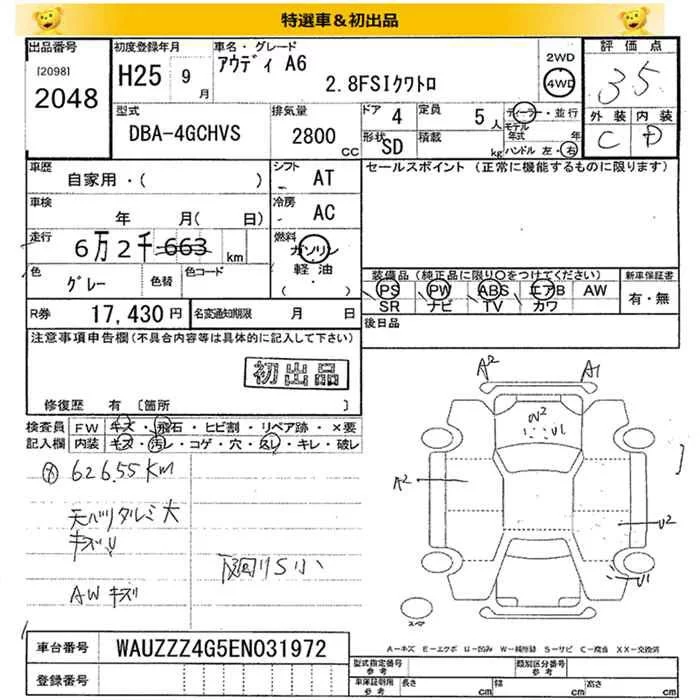 特選車＆初出品
出品番号
[2098]
2048
初度登録年月
H25 9月
車名・グレード
アウディ A6
2.8FSIクワトロ
2WD
4WD
評価点
3.5
外装 内装
C D
型式
DBA-4GCHVS
排気量
2800 CC
ドア 4
形状 SD
定員 5人
積載 kg
ディーラー・並行
モデル年式 年
ハンドル 左・右
車歴
自家用・( )
シフト AT
セールスポイント (正常に機能するものに限ります)
車検
年 月( 日)
冷房 AC
走行
6万2千663 km
燃料
ガソリン
軽油
( ・ )
色
グレー
色替
色コード
装備品 (純正品に限り○をつけてください)
PS PW ABS エアB AW
SR ナビ TV カワ
新車保証書
有・無
R券 17,430円
名変通知期限 月 日
後日品
注意事項申告欄(不具合内容等は具体的に記入して下さい)
初出品
修復歴 有 〔箇所 〕
検査員記入欄
FW キズ・飛石・ヒビ割・リペア跡・×要
内装 キズ・汚レ・コゲ・穴・スレ・キレ・破レ
62655 KM
天バリタルミ大
キズ
AWキズ
下回りS小
A2 A1
W2
U1
A2
U2
U1
スペア
A－キズ E－エクボ U－凹み W－補修跡 S－サビ C－腐食 XX－交換済
車台番号 WAUZZZ4G5EN031972
登録番号
型式指定番号
参考
類別区分番号
参考
車庫証明用
参考
長さ cm
幅 cm
高さ cm